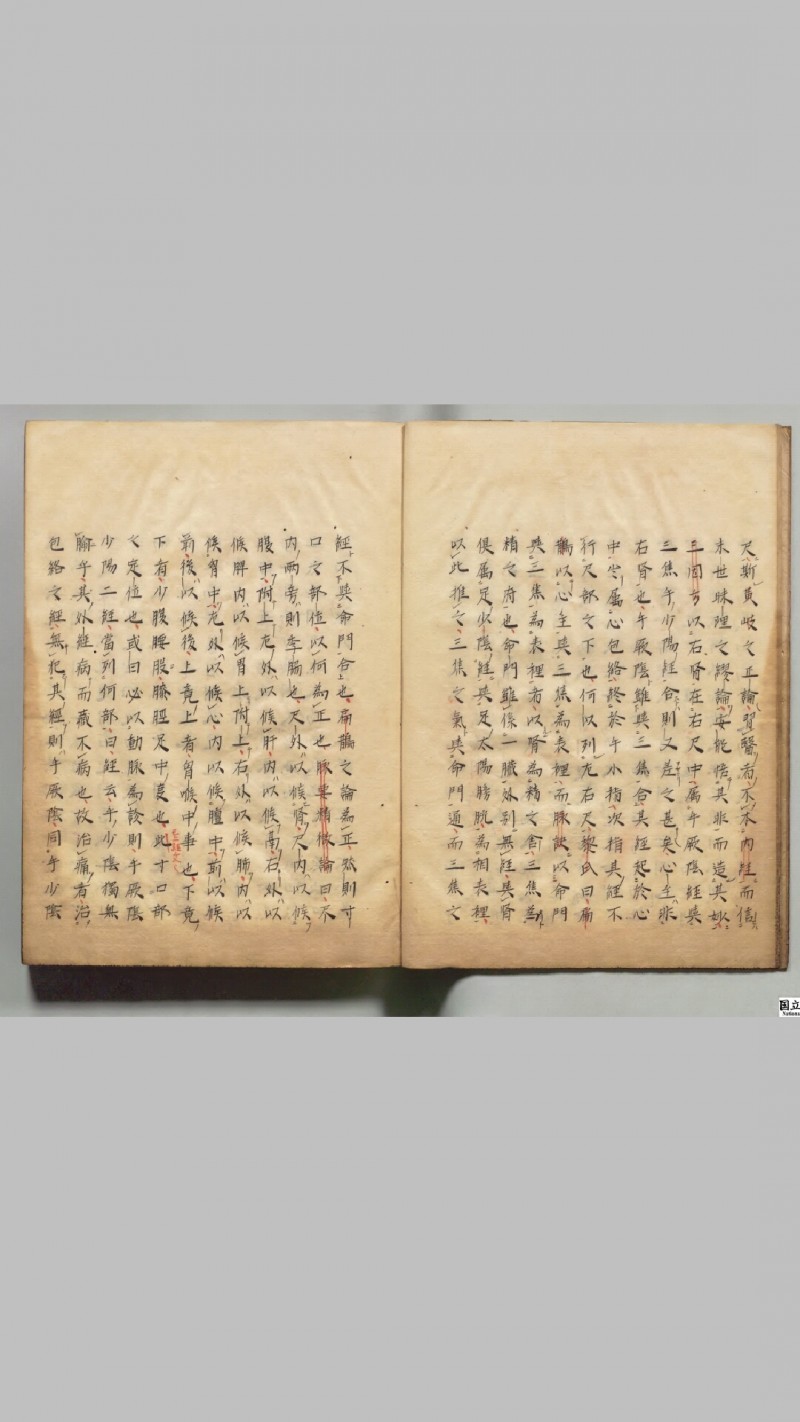 尺斯貟岐之正論習醫者不本内經而信
末世昧理之繆論安能悟其非而造其妙
王固古以右腎在右尺中属手厥陰經與
三焦手少陽經合則又差之甚矣心主非
右腎也手厥陰雖與三焦合其經起於心
中出属心包絡終於手小指次指其經不
行尺部之下也何以列尤右尺黎氏曰扁
鵲以心主與三焦為表裡而脉訣以命門
與三焦為表裡者以腎為精之舎三焦為
精之府也命門雖係一臓外别無經與腎
俱属足少陰經與足太陽膀胱為相表裡
以此推之三焦之氣與命門通而三焦之
經不與命門合也扁鵲之論為正然則寸
口之部位以何為正也脉要精微論曰尺
内兩旁則季脇也尺外以候腎尺内以候
腹中附上尤外以候肝内以候鬲右外以
候脾内以候胃上附上右外以候肺内以
候胷中尤外以候心内以候膻中前以候
前後以候後上竟上者胷喉中事也下竟
下有少腹腰股膝脛足中事也此寸口部
之定位也或曰必以動脉為診則手厥陰
少陽二經當列何部曰經云手少陰獨無
腧乎其外經病而蔵不病也故治痛者治
包絡之經無犯其經則手厥陰同手少陰
国立
Nationa